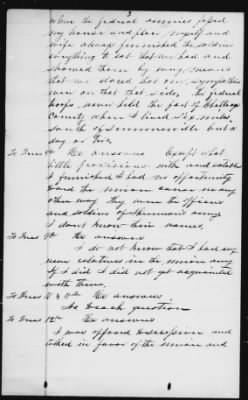 3
When the federal armies passed
my house and place myself and
wife always furnished the soldiers
everything to eat that we had and
showed them by many means
that we dared that our sympathies
were on that side. The federal
troops never held the part of Chattooga
County where I lived six miles
south of Summerville but a
day or two.
To Inter he answers Except what
little provisions with and eatables
I furnished I had no opportunity
to aid the union cause in any
other way. They were the officers
and soldiers of Sherman's army
I don't know their names.
To Inter 9th he answers
I do not know that I had any
near relatives in the union army
If I did I did not get acquainted
with them.
To Inter 10 & 11th he answers
No to each question
To Inter 12th he answers
I was opposed to secession and
talked in favor of the union and